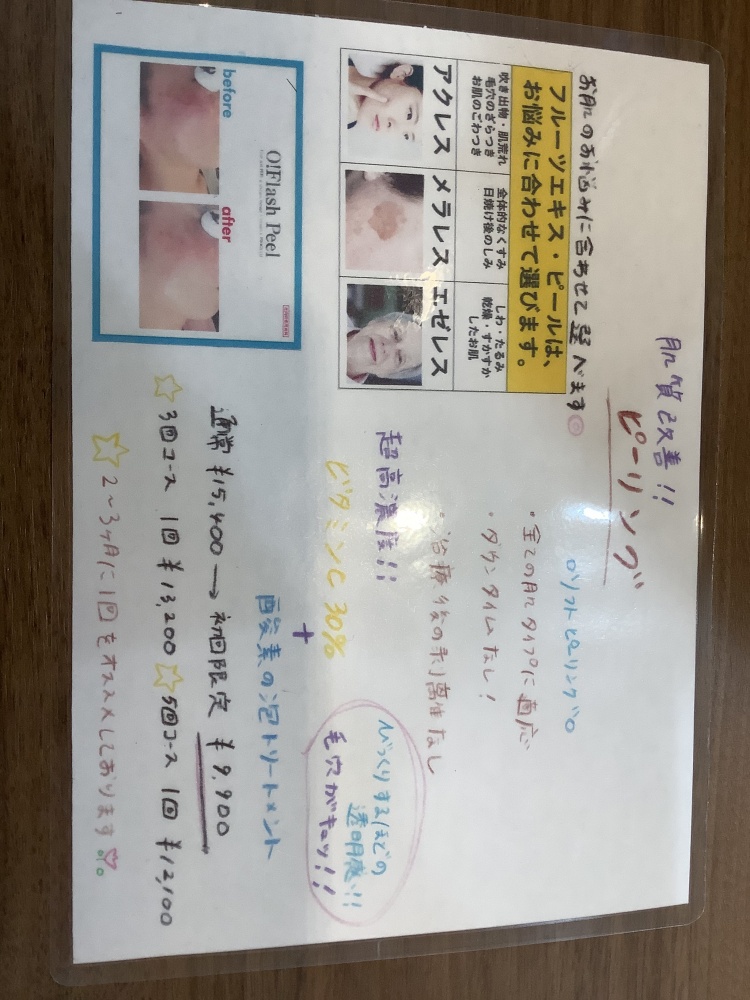 肌質改善!!
ピーリング
お肌のお悩みに合わせて選べます☺
フルーツエキス・ピールは、
お悩みに合わせて選びます。
吹き出物・肌荒れ
毛穴のざらつき
お肌のごわつき
全体的なくすみ
日焼け後のしみ
しわ・たるみ
乾燥・すかすか
したお肌
アクレス
メラレス
エゼレス
O!Flash Peel
before
after
○ソフトピーリング○
・全ての肌タイプに適応
・ダウンタイムなし!
・治療後の刺激性なし
超高濃度!!
ビタミンC 30%
+
酵素の泡トリートメント
びっくりするほどの
透明感!!
毛穴がキュッ!!
通常 ¥15,400 → 初回限定 ¥9,900
☆3回コース 1回 ¥13,200 ☆5回コース 1回 ¥12,100
☆2〜3ヶ月に1回をオススメしております♡